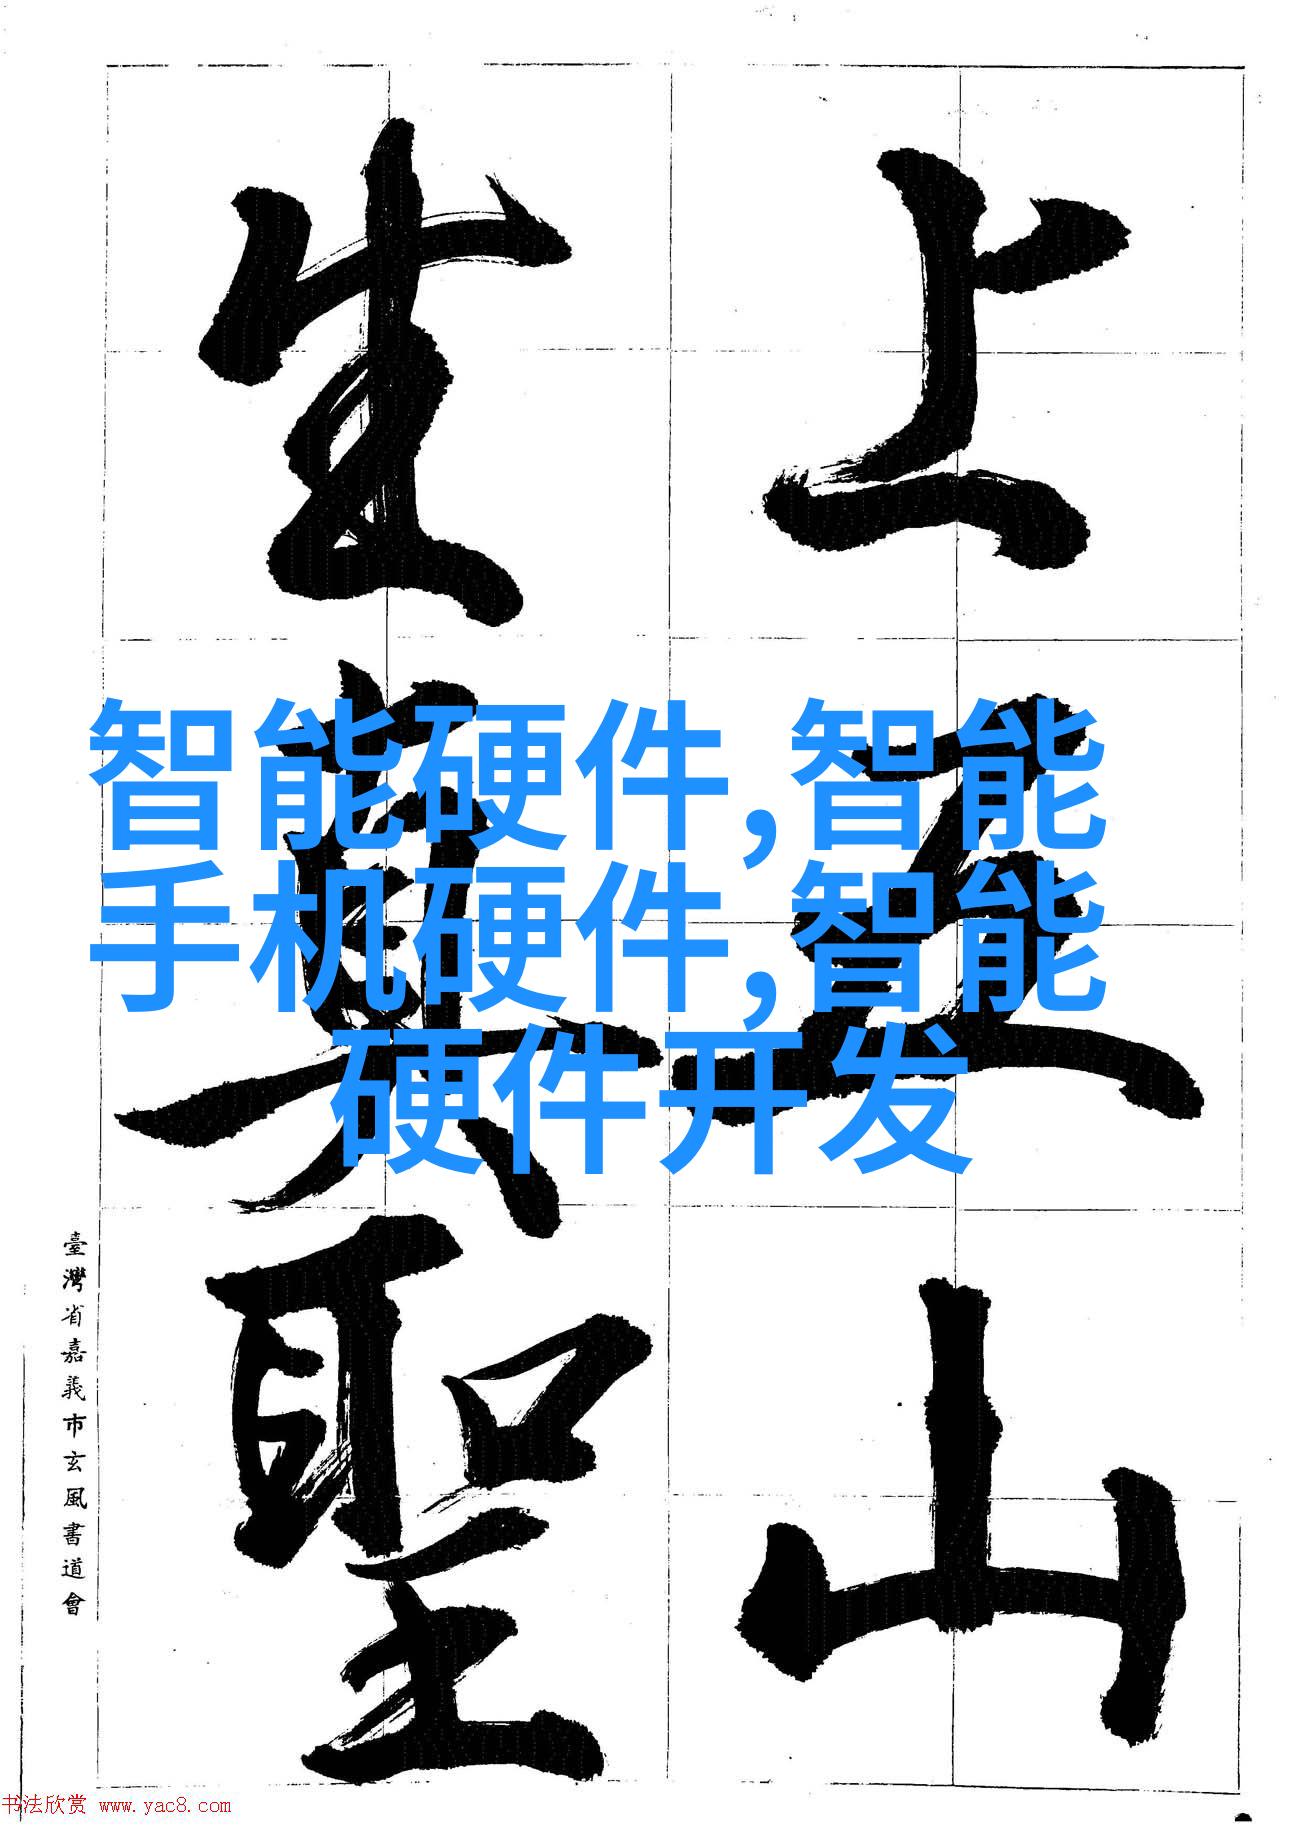 上五山
生真聖
智能硬件,智能
手机硬件,智能
硬件开发
臺灣省嘉義市玄風書道會
书法欣赏 www.yac8.com